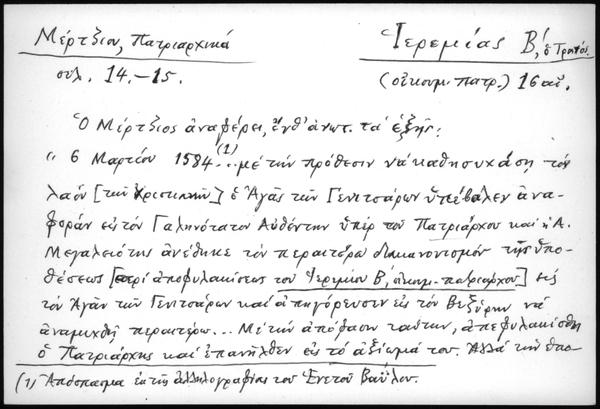 Μέρτζιου, Πατριαρχικά
Ἱερεμίας Β΄, ὁ Τρανός
σελ. 14.-15.
(οἰκουμ. πατρ.) 16 αἰ.
Ὁ Μέρτζιος ἀναφέρει, ἔνθ' ἀνωτ. τὰ ἑξῆς:
"6 Μαρτίου 1584...(1) μὲ τὴν πρόθεσιν νὰ καθησυχάσῃ τὸν
λαὸν [τῶν Χριστιανῶν] ὁ Ἀγᾶς τῶν Γενιτσάρων ὑπέβαλεν ἀνα-
φορὰν εἰς τὸν Γαληνότατον Αὐθέντην ὑπὲρ τοῦ Πατριάρχου καὶ ἡ Α.
Μεγαλειότης ἀνέθηκε τὸν περαιτέρω διακανονισμὸν τῆς ὑπο-
θέσεως [περὶ ἀποφυλακίσεως τοῦ Ἱερεμίου Β΄, οἰκουμ. πατριάρχου] εἰς
τὸν Ἀγᾶν τῶν Γενιτσάρων καὶ ἀπηγόρευσεν εἰς τὸν Βεζύρην νὰ
ἀναμιχθῇ περαιτέρω... Μὲ τὴν ἀπόφασιν ταύτην, ἀπεφυλακίσθη
ὁ Πατριάρχης καὶ ἐπανῆλθεν εἰς τὸ ἀξίωμά του. Ἀλλὰ τὴν ἑπο-
(1) Ἀπόσπασμα ἐκ τῆς ἀλληλογραφίας τοῦ Ἑνετοῦ Βαΐλου.